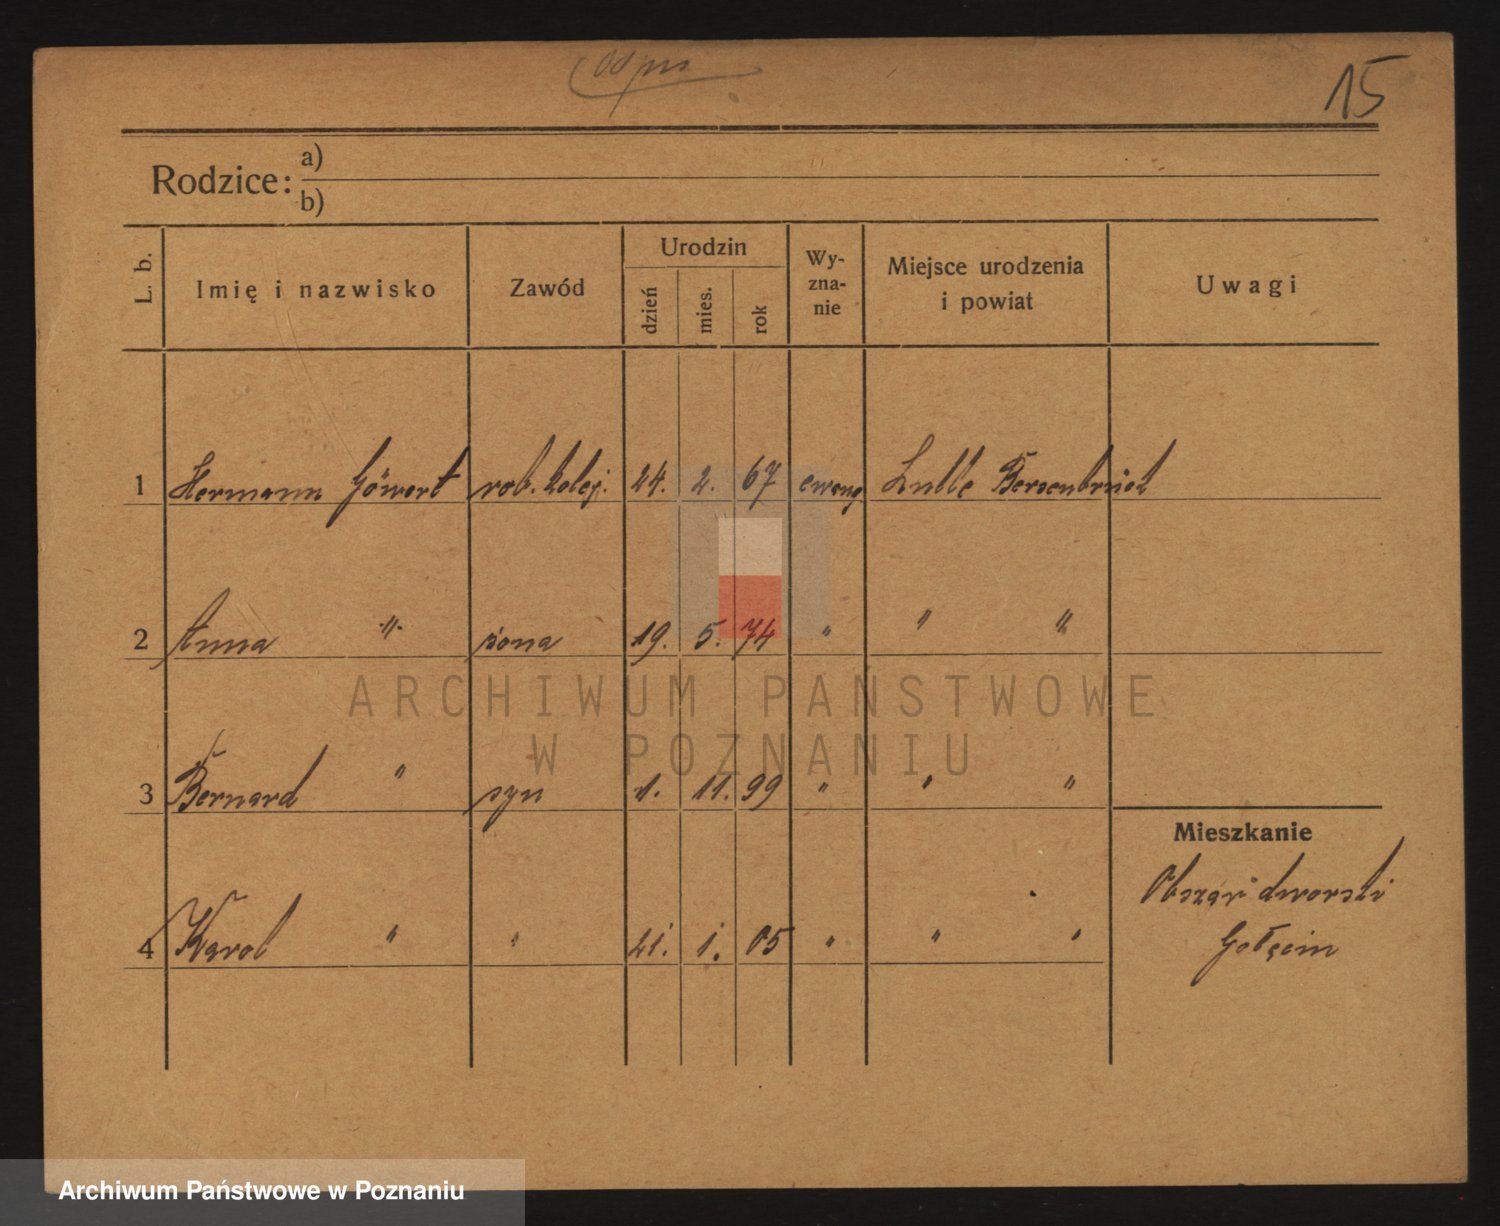 15
Rodzice: a)
b)
L. b. Imię i nazwisko Zawód Urodzin dzień mies. rok Wy-zna-nie Miejsce urodzenia i powiat Uwagi
1 Hermann Göwert rob. kolej. 24. 2. 67 ewang Lulle Bersenbrück
2 Anna " żona 19. 5. 74 " " "
3 Bernard " syn 1. 11. 99 " " "
4 Karol " " 21. 1. 05 " " "
Mieszkanie
Obszar dworski
Gołęcin
ARCHIWUM PAŃSTWOWE
W POZNANIU
Archiwum Państwowe w Poznaniu